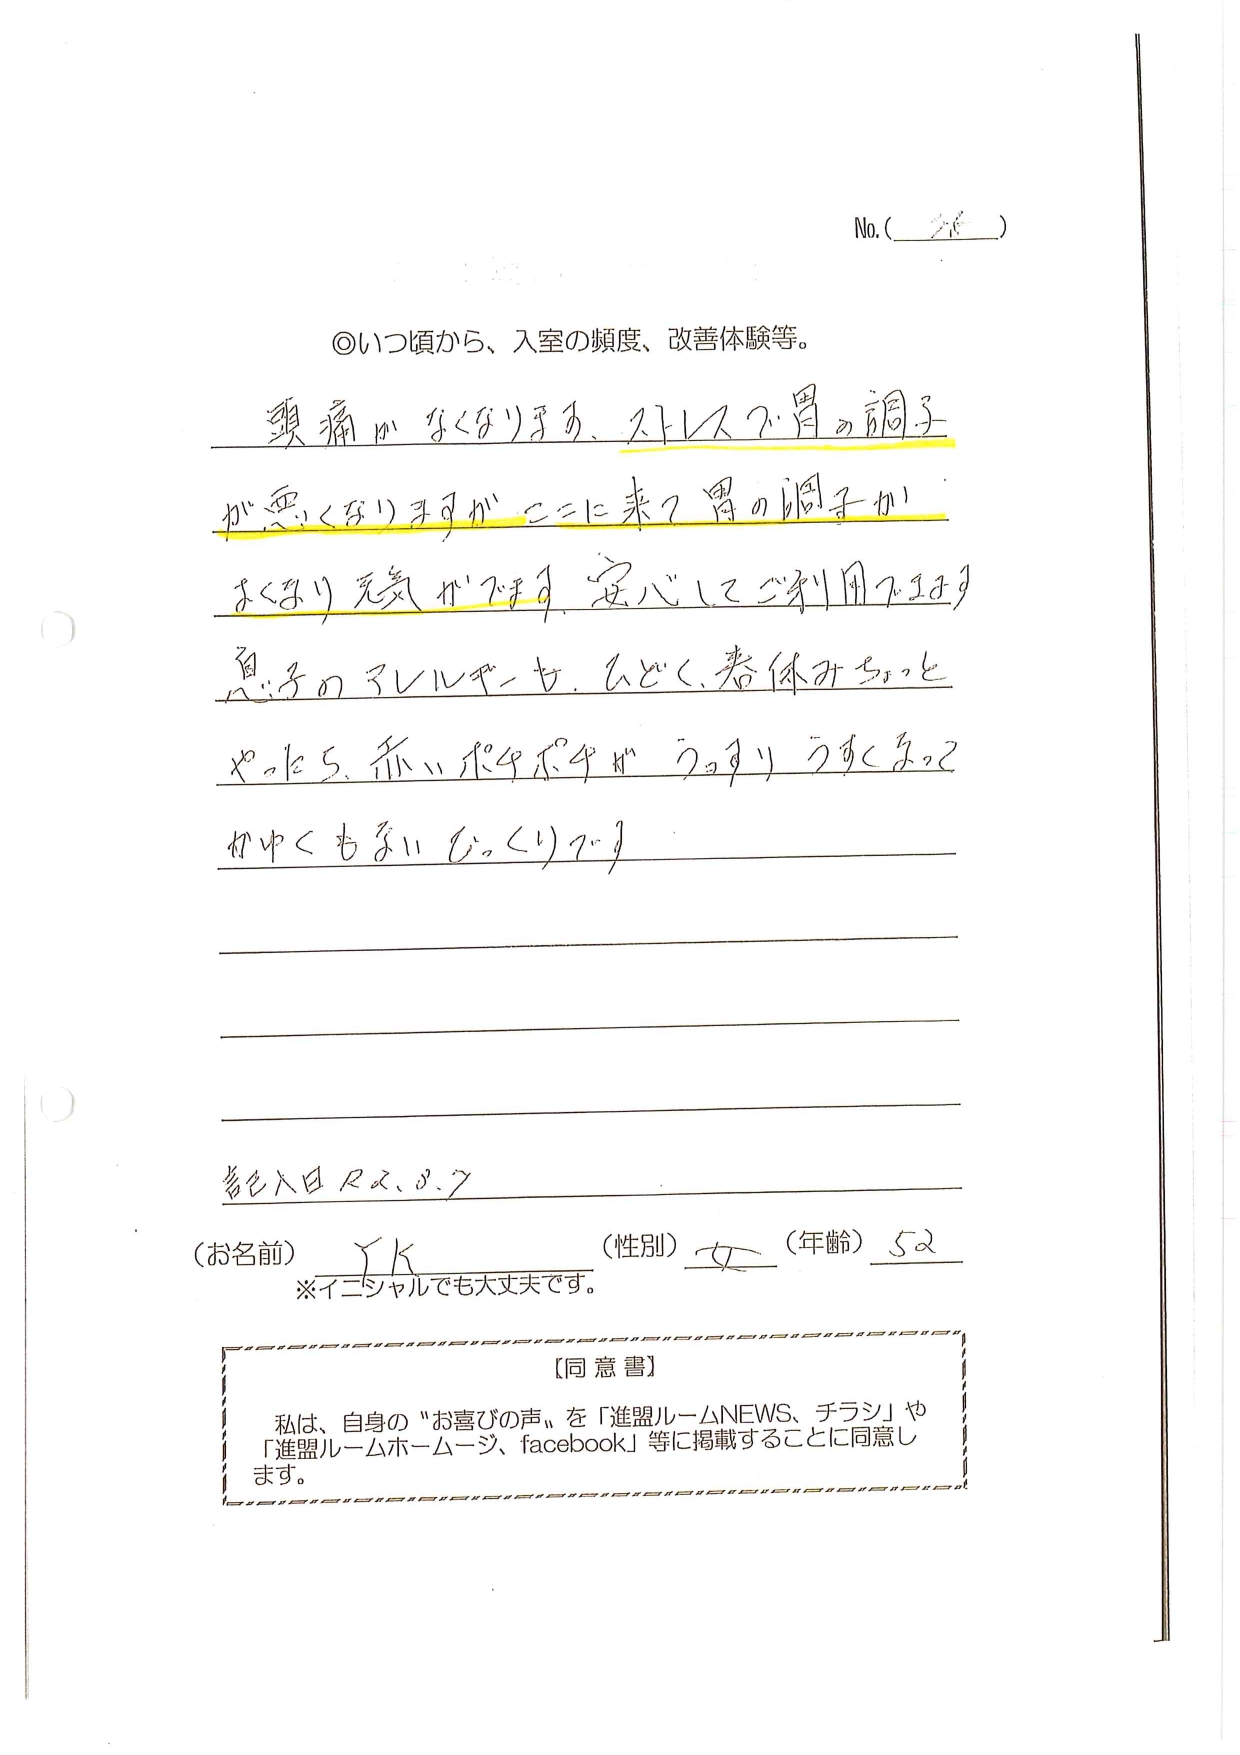 No.( )
◎いつ頃から、入室の頻度、改善体験等。
頭痛がなくなります、ストレスで胃の調子
が悪くなりますが ここに来て 胃の調子が
よくなり 元気がでます、安心してご利用できます
息子のアレルギーも、ひどく、春休みちょっと
やったら、赤いポチポチが うっすり うすくなって
かゆくもない びっくりです
記入日 R2、8、7
（お名前） YK （性別） 女 （年齢） 52
※イニシャルでも大丈夫です。
【同 意 書】
私は、自身の〝お喜びの声〟を「進盟ルームNEWS、チラシ」や
「進盟ルームホームージ、facebook」等に掲載することに同意し
ます。